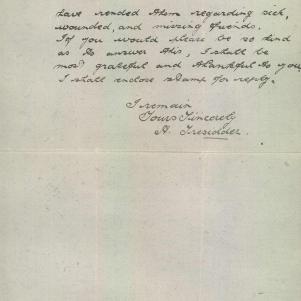 have sended them regarding sick,
wounded, and missing friends.
If you would please be so kind
as to answer this, I shall be
most grateful and thankful to you
I shall enclose stamp for reply.
I remain
Yours Sincerely
A. Tresidder.